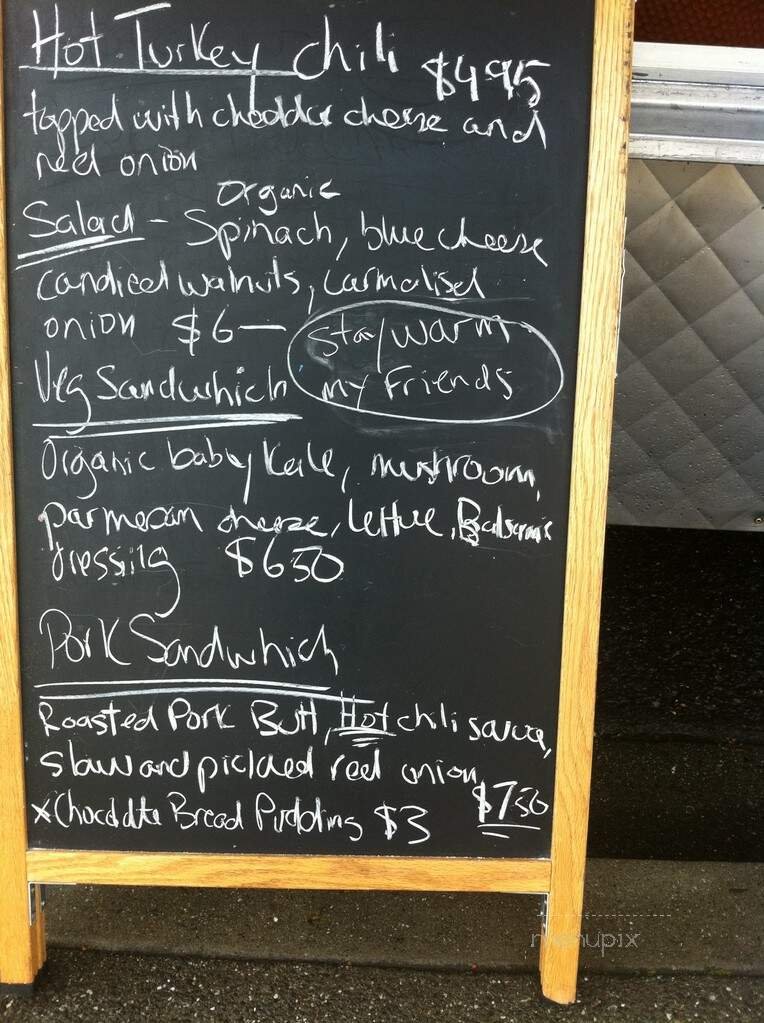 Hot Turkey chili $4.95
topped with cheddar cheese and
red onion
Organic
Salad - Spinach, blue cheese
candied walnuts, carmalised
onion $6—
Stay warm
my Friends
Veg Sandwhich
Organic baby kale, mushroom,
parmesan cheese, lettuce, Balsamic
dressing $6.50
Pork Sandwhich
Roasted Pork Butt, Hot chili sauce,
slaw and pickled red onion
$7.50
x Chocolate Bread Pudding $3
menupix